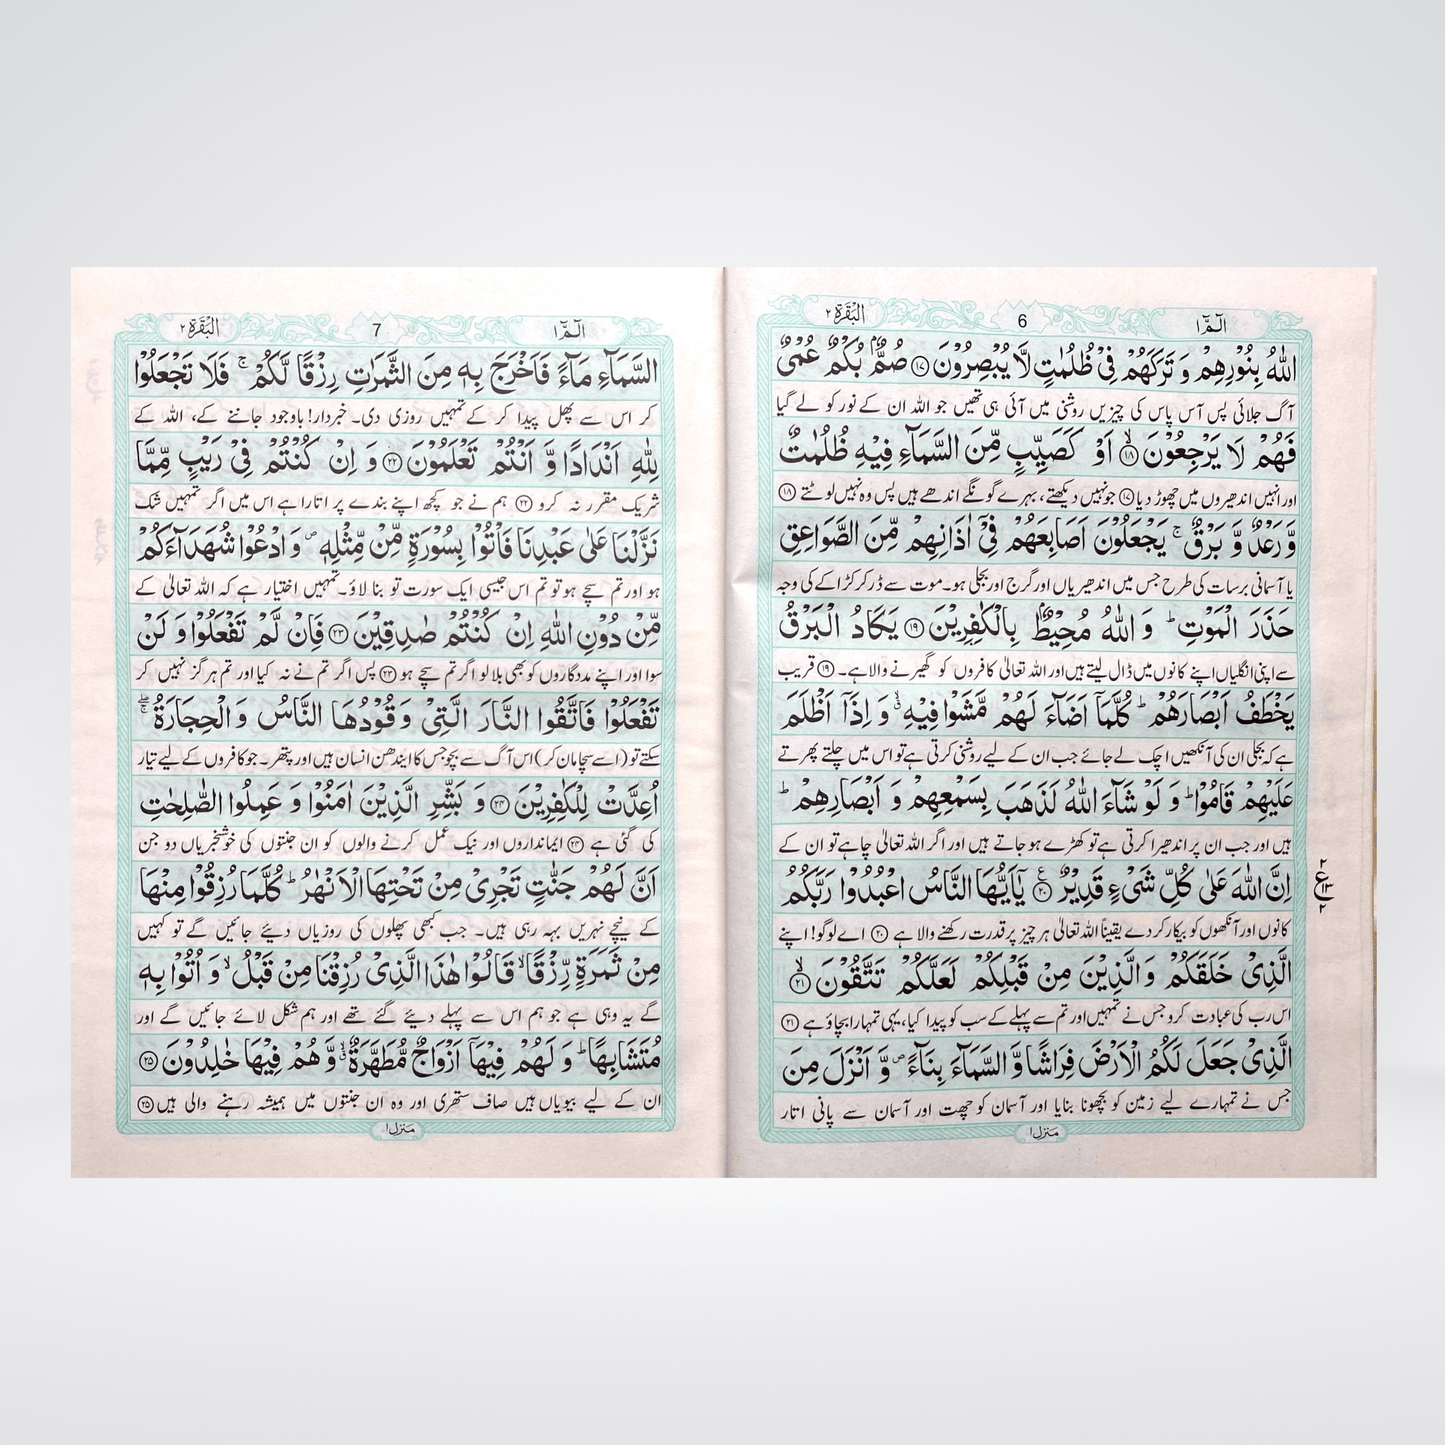 الٓمّٓ ١
6
البقرة ٢
اللّٰهُ بِنُوْرِهِمْ وَ تَرَكَهُمْ فِیْ ظُلُمٰتٍ لَّا یُبْصِرُوْنَ ﴿۱۷﴾ صُمٌّۢ بُكْمٌ عُمْیٌ
آگ جلائی پس آس پاس کی چیزیں روشنی میں آئی ہی تھیں جو اللہ ان کے نور کو لے گیا
فَهُمْ لَا یَرْجِعُوْنَ ﴿ۙ۱۸﴾ اَوْ كَصَیِّبٍ مِّنَ السَّمَآءِ فِیْهِ ظُلُمٰتٌ
اور انہیں اندھیروں میں چھوڑ دیا ﴿۱۷﴾ جو نہیں دیکھتے، بہرے گونگے اندھے ہیں پس وہ نہیں لوٹتے ﴿۱۸﴾
وَّ رَعْدٌ وَّ بَرْقٌ ۚ یَجْعَلُوْنَ اَصَابِعَهُمْ فِیْۤ اٰذَانِهِمْ مِّنَ الصَّوَاعِقِ
یا آسمانی برسات کی طرح جس میں اندھیریاں اور گرج اور بجلی ہو۔ موت سے ڈر کر کڑاکے کی وجہ
حَذَرَ الْمَوْتِ ؕ وَ اللّٰهُ مُحِیْطٌۢ بِالْكٰفِرِیْنَ ﴿۱۹﴾ یَكَادُ الْبَرْقُ
سے اپنی انگلیاں اپنے کانوں میں ڈال لیتے ہیں اور اللہ تعالیٰ کافروں کو گھیرنے والا ہے۔ ﴿۱۹﴾ قریب
یَخْطَفُ اَبْصَارَهُمْ ؕ كُلَّمَاۤ اَضَآءَ لَهُمْ مَّشَوْا فِیْهِ ۙۗ وَ اِذَاۤ اَظْلَمَ
ہے کہ بجلی ان کی آنکھیں اچک لے جائے جب ان کے لیے روشنی کرتی ہے تو اس میں چلتے پھرتے
عَلَیْهِمْ قَامُوْا ؕ وَ لَوْ شَآءَ اللّٰهُ لَذَهَبَ بِسَمْعِهِمْ وَ اَبْصَارِهِمْ ؕ
ہیں اور جب ان پر اندھیرا کرتی ہے تو کھڑے ہو جاتے ہیں اور اگر اللہ تعالیٰ چاہے تو ان کے
اِنَّ اللّٰهَ عَلٰی كُلِّ شَیْءٍ قَدِیْرٌ ﴿ع۲۰﴾ یٰۤاَیُّهَا النَّاسُ اعْبُدُوْا رَبَّكُمُ
کانوں اور آنکھوں کو بیکار کر دے یقیناً اللہ تعالیٰ ہر چیز پر قدرت رکھنے والا ہے ﴿۲۰﴾ اے لوگو! اپنے
الَّذِیْ خَلَقَكُمْ وَ الَّذِیْنَ مِنْ قَبْلِكُمْ لَعَلَّكُمْ تَتَّقُوْنَ ﴿ۙ۲۱﴾
اس رب کی عبادت کرو جس نے تمہیں اور تم سے پہلے کے سب کو پیدا کیا، یہی تمہارا بچاؤ ہے ﴿۲۱﴾
الَّذِیْ جَعَلَ لَكُمُ الْاَرْضَ فِرَاشًا وَّ السَّمَآءَ بِنَآءً ۪ وَّ اَنْزَلَ مِنَ
جس نے تمہارے لیے زمین کو بچھونا بنایا اور آسمان کو چھت اور آسمان سے پانی اتار
منزل ١
الٓمّٓ ١
7
البقرة ٢
السَّمَآءِ مَآءً فَاَخْرَجَ بِهٖ مِنَ الثَّمَرٰتِ رِزْقًا لَّكُمْ ۚ فَلَا تَجْعَلُوْا
کر اس سے پھل پیدا کر کے تمہیں روزی دی۔ خبردار! باوجود جاننے کے، اللہ کے
لِلّٰهِ اَنْدَادًا وَّ اَنْتُمْ تَعْلَمُوْنَ ﴿۲۲﴾ وَ اِنْ كُنْتُمْ فِیْ رَیْبٍ مِّمَّا
شریک مقرر نہ کرو ﴿۲۲﴾ ہم نے جو کچھ اپنے بندے پر اتارا ہے اس میں اگر تمہیں شک
نَزَّلْنَا عَلٰی عَبْدِنَا فَاْتُوْا بِسُوْرَةٍ مِّنْ مِّثْلِهٖ ۪ وَ ادْعُوْا شُهَدَآءَكُمْ
ہو اور تم سچے ہو تو تم اس جیسی ایک سورت تو بنا لاؤ۔ تمہیں اختیار ہے کہ اللہ تعالیٰ کے
مِّنْ دُوْنِ اللّٰهِ اِنْ كُنْتُمْ صٰدِقِیْنَ ﴿۲۳﴾ فَاِنْ لَّمْ تَفْعَلُوْا وَ لَنْ
سوا اور اپنے مددگاروں کو بھی بلا لو اگر تم سچے ہو ﴿۲۳﴾ پس اگر تم نے نہ کیا اور تم ہرگز نہیں کر
تَفْعَلُوْا فَاتَّقُوا النَّارَ الَّتِیْ وَ قُوْدُهَا النَّاسُ وَ الْحِجَارَةُ ۖۚ
سکتے تو (اسے سچا مان کر) اس آگ سے بچو جس کا ایندھن انسان ہیں اور پتھر۔ جو کافروں کے لیے تیار
اُعِدَّتْ لِلْكٰفِرِیْنَ ﴿۲۴﴾ وَ بَشِّرِ الَّذِیْنَ اٰمَنُوْا وَ عَمِلُوا الصّٰلِحٰتِ
کی گئی ہے ﴿۲۴﴾ ایمانداروں اور نیک عمل کرنے والوں کو ان جنتوں کی خوشخبریاں دو جن
اَنَّ لَهُمْ جَنّٰتٍ تَجْرِیْ مِنْ تَحْتِهَا الْاَنْهٰرُ ؕ كُلَّمَا رُزِقُوْا مِنْهَا
کے نیچے نہریں بہہ رہی ہیں۔ جب کبھی پھلوں کی روزیاں دیئے جائیں گے تو کہیں
مِنْ ثَمَرَةٍ رِّزْقًا ۙ قَالُوْا هٰذَا الَّذِیْ رُزِقْنَا مِنْ قَبْلُ ۙ وَ اُتُوْا بِهٖ
گے یہ وہی ہے جو ہم اس سے پہلے دیئے گئے تھے اور ہم شکل لائے جائیں گے اور
مُتَشَابِهًا ؕ وَ لَهُمْ فِیْهَاۤ اَزْوَاجٌ مُّطَهَّرَةٌ ۙۗ وَّ هُمْ فِیْهَا خٰلِدُوْنَ ﴿۲۵﴾
ان کے لیے بیویاں ہیں صاف ستھری اور وہ ان جنتوں میں ہمیشہ رہنے والی ہیں ﴿۲۵﴾
منزل ١